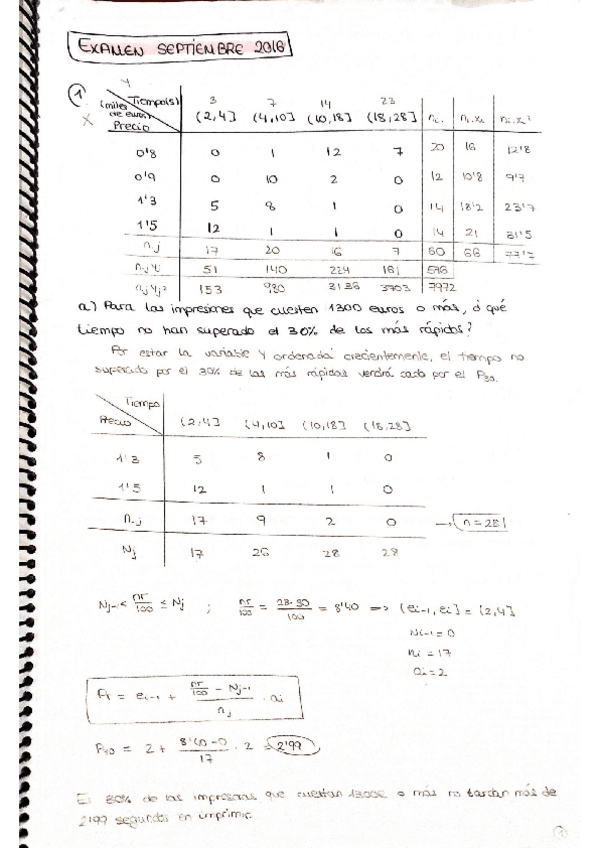 EXAMEN SEPTIEMBRE 2016
1
Y
X
Tiempo(s) 3 7 14 23
(miles de euros) Precio (2,4] (4,10] (10,18] (18,28] ni. ni.xi ni.xi²
0'8 0 1 12 7 20 16 12'8
0'9 0 10 2 0 12 10'8 9'7
1'3 5 8 1 0 14 18'2 23'7
1'5 12 1 1 0 14 21 31'5
n.j 17 20 16 7 60 66 77'7
n.jYj 51 140 224 161 576
n.jYj² 153 980 3136 3703 7972
a) Para las impresiones que cuesten 1300 euros o más, ¿qué
tiempo no han superado el 30% de los más rápidos?
Por estar la variable Y ordenada crecientemente, el tiempo no
superado por el 30% de las más rápidas vendrá dado por el P30.
Tiempo
Precio (2,4] (4,10] (10,18] (18,28]
1'3 5 8 1 0
1'5 12 1 1 0
n.j 17 9 2 0 → n = 28
Nj 17 26 28 28
Nj-1 < nr/100 ≤ Nj ; nr/100 = 28·30/100 = 8'40 => (ei-1, ei] = (2,4]
Ni-1 = 0
ni = 17
ai = 2
Pr = ei-1 + (nr/100 - Nj-1)/nj · ai
P30 = 2 + (8'40-0)/17 · 2 = 2'99
El 30% de las impresoras que cuestan 1300€ o más no tardan más de
2'99 segundos en imprimir.